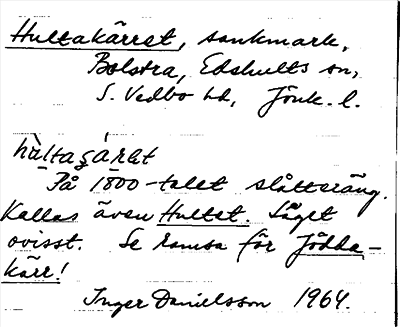 Hultakärret, sankmark,
Bolstra, Edshults sn,
S. Vedbo hd, Jönk. l.
hùltaçárët
På 1800-talet slåtteräng.
Kallas även Hultet. Läget
ovisst. Se ramsa för Jödda-
kärr!
Inger Danielsson 1964.